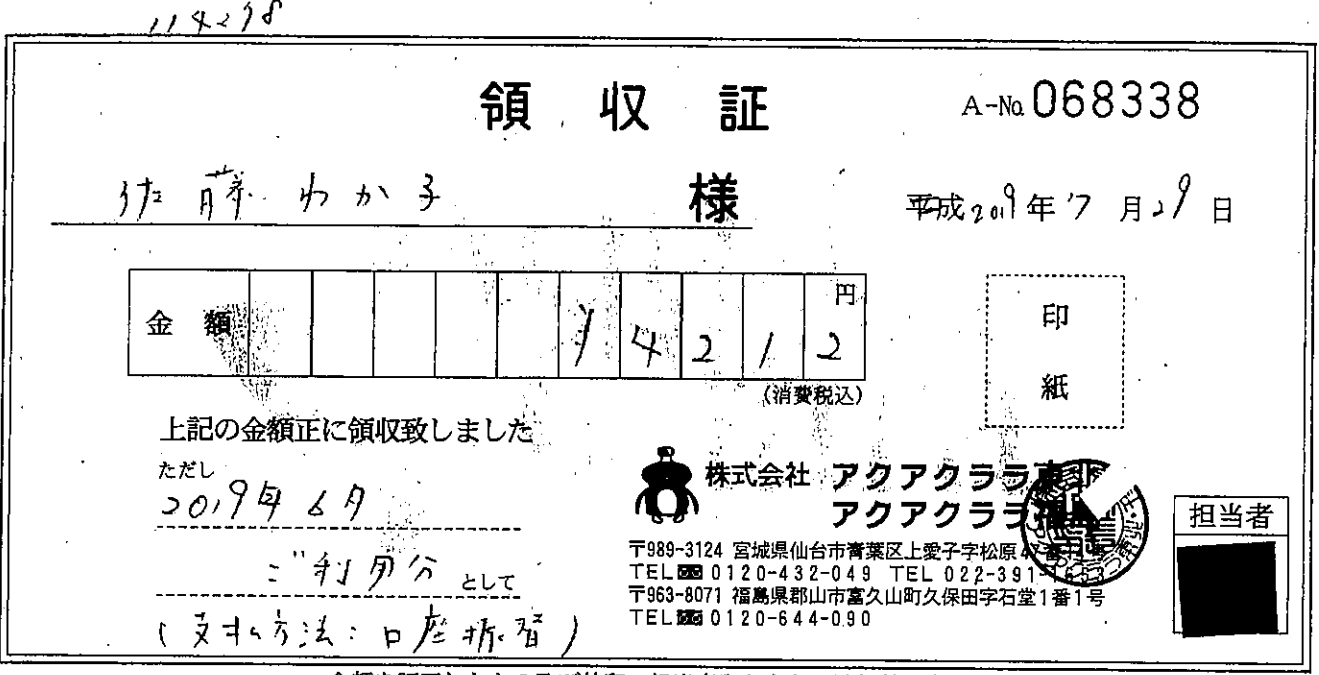 114278
領収証
A-No. 068338
佐藤わか子 様
平成2019年7月29日
金額 ¥4212円
(消費税込)
上記の金額正に領収致しました
ただし
2019年6月
ご利用分 として
(支払方法:口座振替)
印紙
株式会社 アクアクララ東北
アクアクララ福島
〒989-3124 宮城県仙台市青葉区上愛子字松原47番
TEL 0120-432-049 TEL 022-391-1653
〒963-8071 福島県郡山市富久山町久保田字石堂1番1号
TEL 0120-644-090
担当者